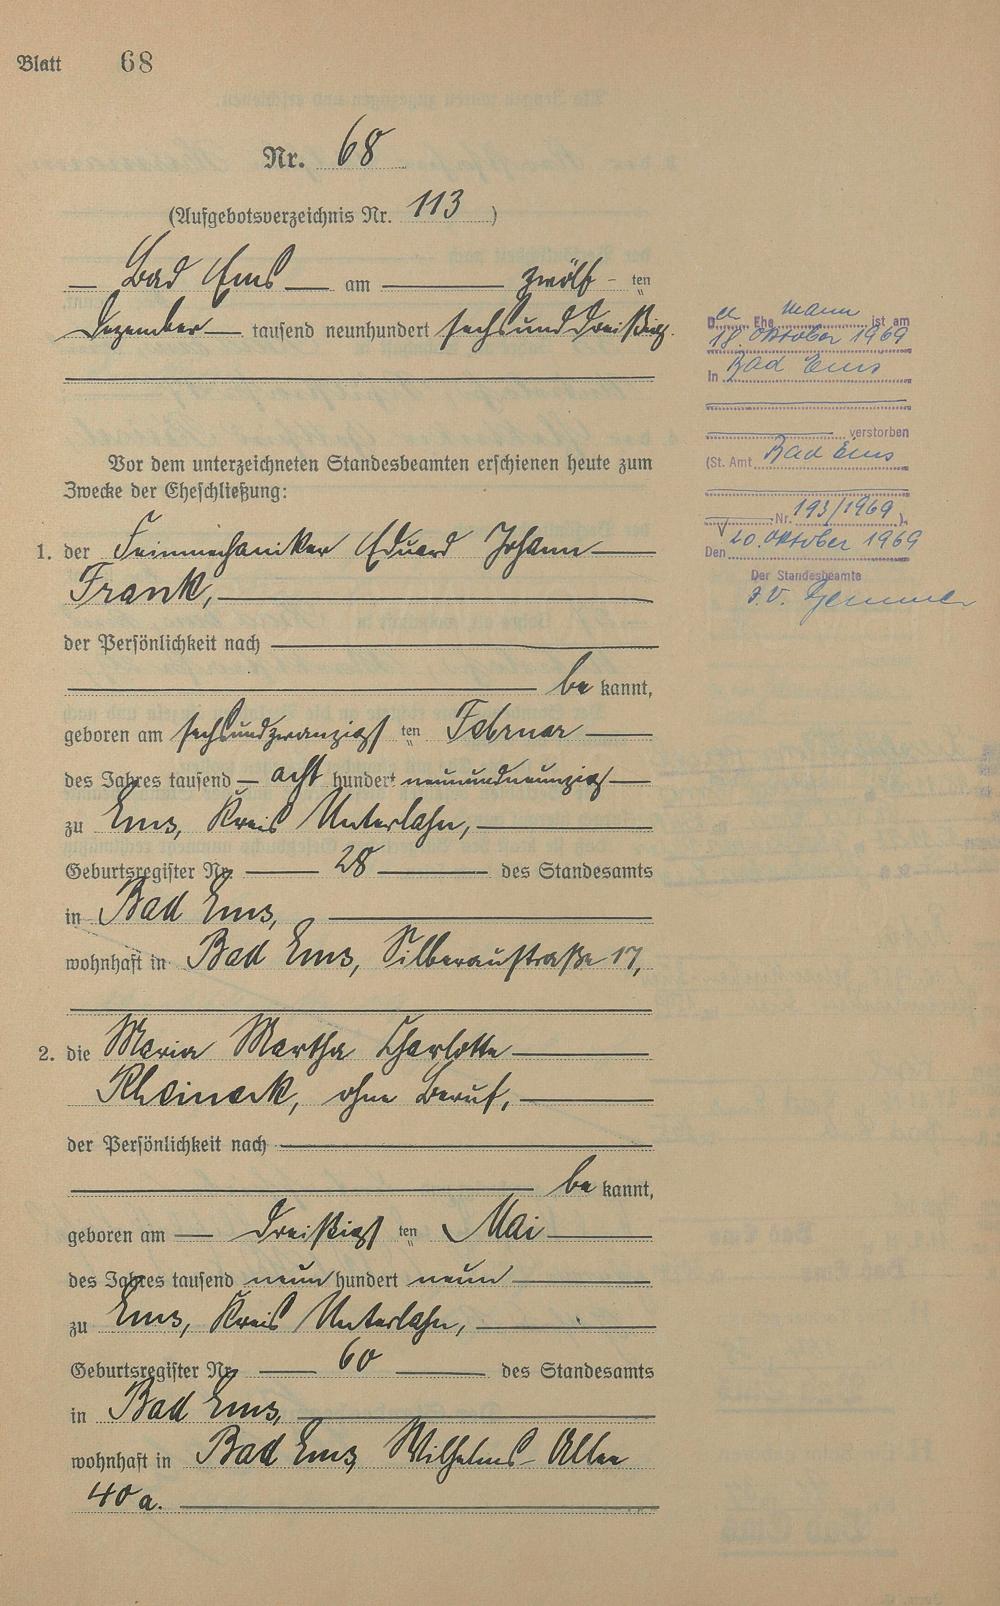 Blatt 68
Nr. 68
(Aufgebotsverzeichnis Nr. 113)
Bad Ems am zwölf ten
Dezember tausend neunhundert sechsunddreißig.
Vor dem unterzeichneten Standesbeamten erschienen heute zum
Zwecke der Eheschließung:
1. der Feinmechaniker Eduard Johann
Frank,
der Persönlichkeit nach
be kannt,
geboren am sechsundzwanzigs ten Februar
des Jahres tausend acht hundert neunundneunzig
zu Ems, Kreis Unterlahn,
Geburtsregister Nr. 28 des Standesamts
in Bad Ems,
wohnhaft in Bad Ems, Silberaustraße 17,
2. die Maria Martha Charlotte
Rheineck, ohne Beruf,
der Persönlichkeit nach
be kannt,
geboren am dreißigs ten Mai
des Jahres tausend neun hundert neun
zu Ems, Kreis Unterlahn,
Geburtsregister Nr. 60 des Standesamts
in Bad Ems,
wohnhaft in Bad Ems, Wilhelms-Allee
40 a.
Der Ehe mann ist am
18. Oktober 1969
in Bad Ems
verstorben
(St. Amt Bad Ems
Nr. 193/1969).
Den 20. Oktober 1969
Der Standesbeamte
I.V.